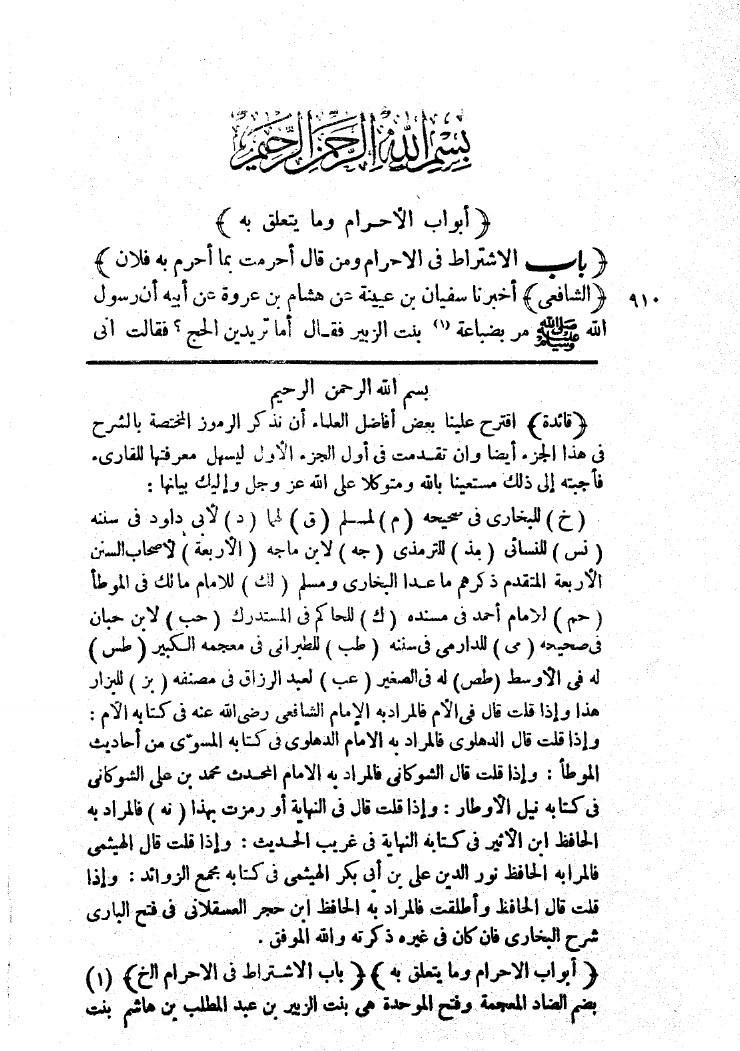 بسم الله الرحمن الرحيم
﴿ أبواب الأحرام وما يتعلق به ﴾
﴿ باب الاشتراط فى الاحرام ومن قال أحرمت بما أحرم به فلان ﴾
٩١٠ ﴿ الشافعى ﴾ أخبرنا سفيان بن عيينة عن هشام بن عروة عن أبيه أن رسول
الله ﷺ مر بضباعة (١) بنت الزبير فقال أما تريدين الحج ؟ فقالت انى
بسم الله الرحمن الرحيم
﴿ فائدة ﴾ اقترح علينا بعض أفاضل العلماء أن نذكر الرموز المختصة بالشرح
فى هذا الجزء أيضا وان تقدمت فى أول الجزء الأول ليسهل معرفتها للقارىء
فأجبته إلى ذلك مستعينا بالله ومتوكلا على الله عز وجل وإليك بيانها :
( خ ) للبخارى فى صحيحه ( م ) لمسلم ( ق ) لهما ( د ) لأبى داود فى سننه
( نس ) للنسائى ( مذ ) للترمذى ( جه ) لابن ماجه ( الأربعة ) لأصحاب السنن
الأربعة المتقدم ذكرهم ما عدا البخارى ومسلم ( لك ) للامام مالك فى الموطأ
( حم ) لامام أحمد فى مسنده ( ك ) للحاكم فى المستدرك ( حب ) لابن حبان
فى صحيحه ( مى ) للدارمى فى سننه ( طب ) للطبرانى فى معجمه الكبير ( طس )
له فى الأوسط ( طص ) له فى الصغير ( عب ) لعبد الرزاق فى مصنفه ( بز ) للبزار
هذا وإذا قلت قال فى الأم فالمراد به الإمام الشافعى رضى الله عنه فى كتابه الأم :
وإذا قلت قال الدهلوى فالمراد به الامام الدهلوى فى كتابه المسوّى من أحاديث
الموطأ : وإذا قلت قال الشوكانى فالمراد به الامام المحدث محمد بن على الشوكانى
فى كتابه نيل الأوطار : وإذا قلت قال فى النهاية أو رمزت بهذا ( نه ) فالمراد به
الحافظ ابن الأثير فى كتابه النهاية فى غريب الحديث : وإذا قلت قال الهيثمى
فالمراد به الحافظ نور الدين على بن أبى بكر الهيثمى فى كتابه مجمع الزوائد : وإذا
قلت قال الحافظ وأطلقت فالمراد به الحافظ ابن حجر العسقلانى فى فتح البارى
شرح البخارى فان كان فى غيره ذكرته والله الموفق .
﴿ أبواب الاحرام وما يتعلق به ﴾ ﴿ باب الاشتراط فى الاحرام الخ ﴾ (١)
بضم الضاد المعجمة وفتح الموحدة هى بنت الزبير بن عبد المطلب بن هاشم بنت